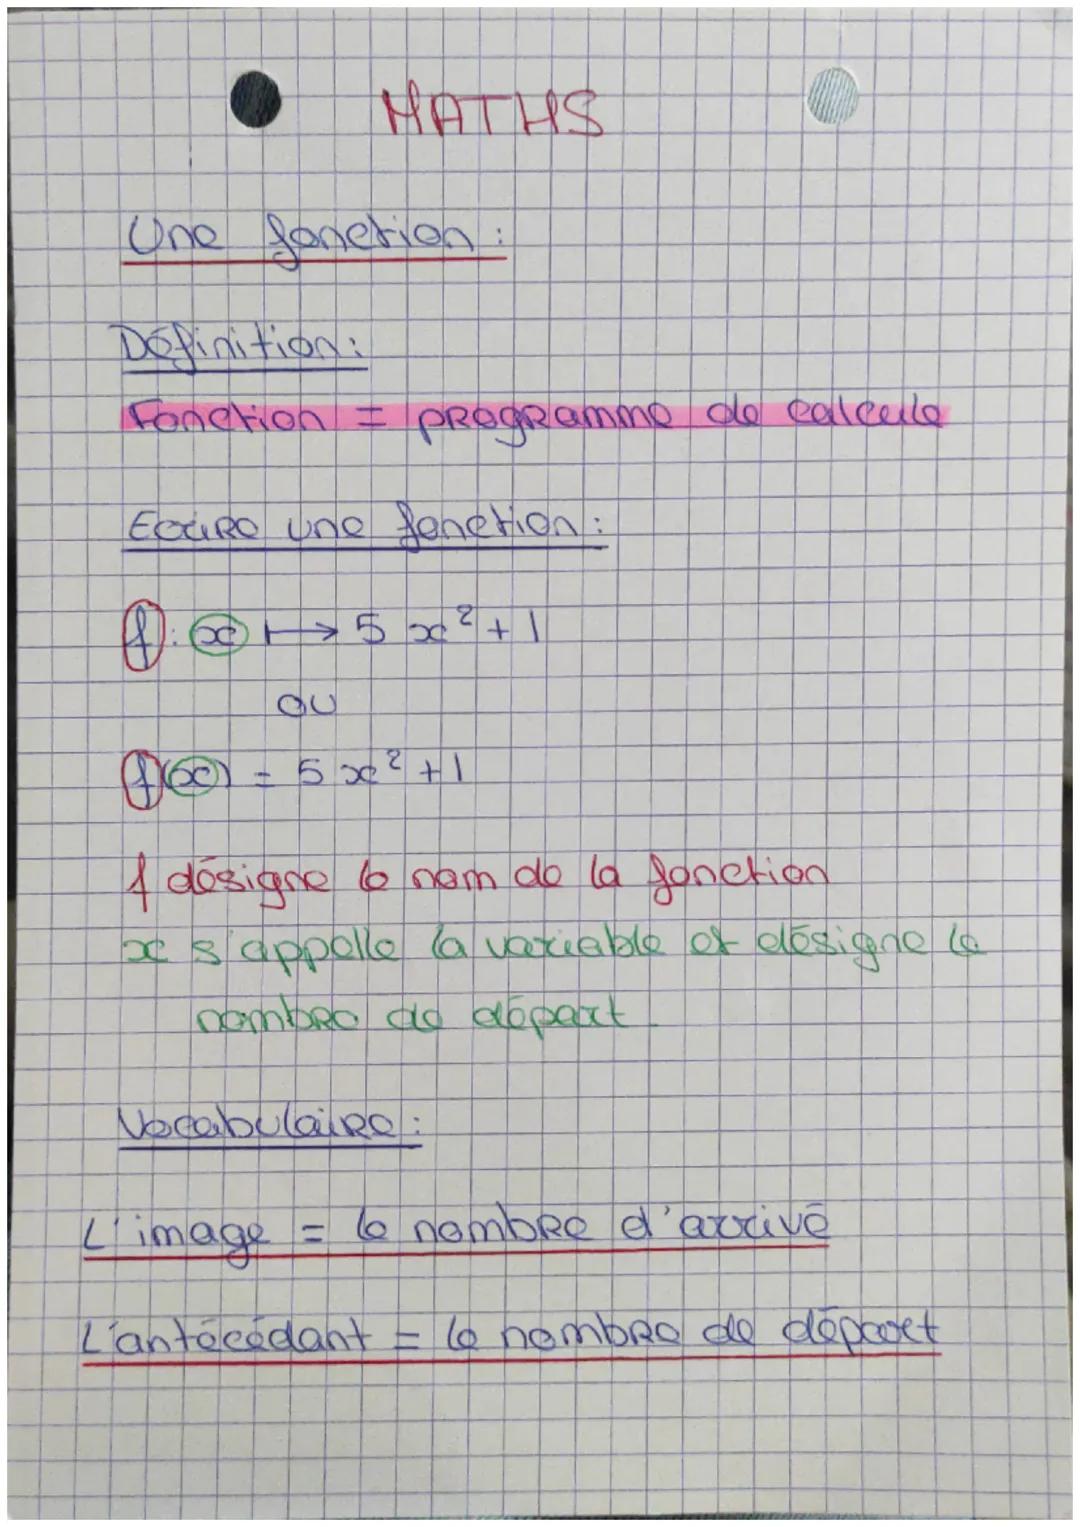 MATHS
Une fonction :
Définition :
Fonction = programme de calcule
Ecrire une fonction :
f : x ↦ 5 x² + 1
ou
f(x) = 5 x² + 1
f désigne le nom de la fonction
x s'appelle la variable et désigne le
nombre de départ.
Vocabulaire :
L'image = le nombre d'arrivé
L'antécédant = le nombre de départ